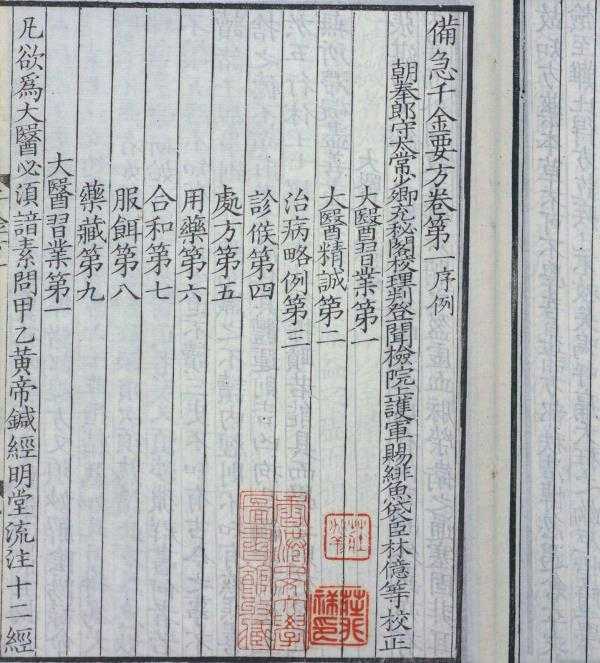 備急千金要方卷第一 序例
朝奉郎守太常少卿充秘閣校理判登聞檢院上護軍賜緋魚袋臣林億等校正
大醫習業第一
大醫精誠第二
治病略例第三
診候第四
處方第五
用藥第六
合和第七
服餌第八
藥藏第九
大醫習業第一
凡欲爲大醫必須諳素問甲乙黃帝鍼經明堂流注十二經
香港大學
圖書館藏